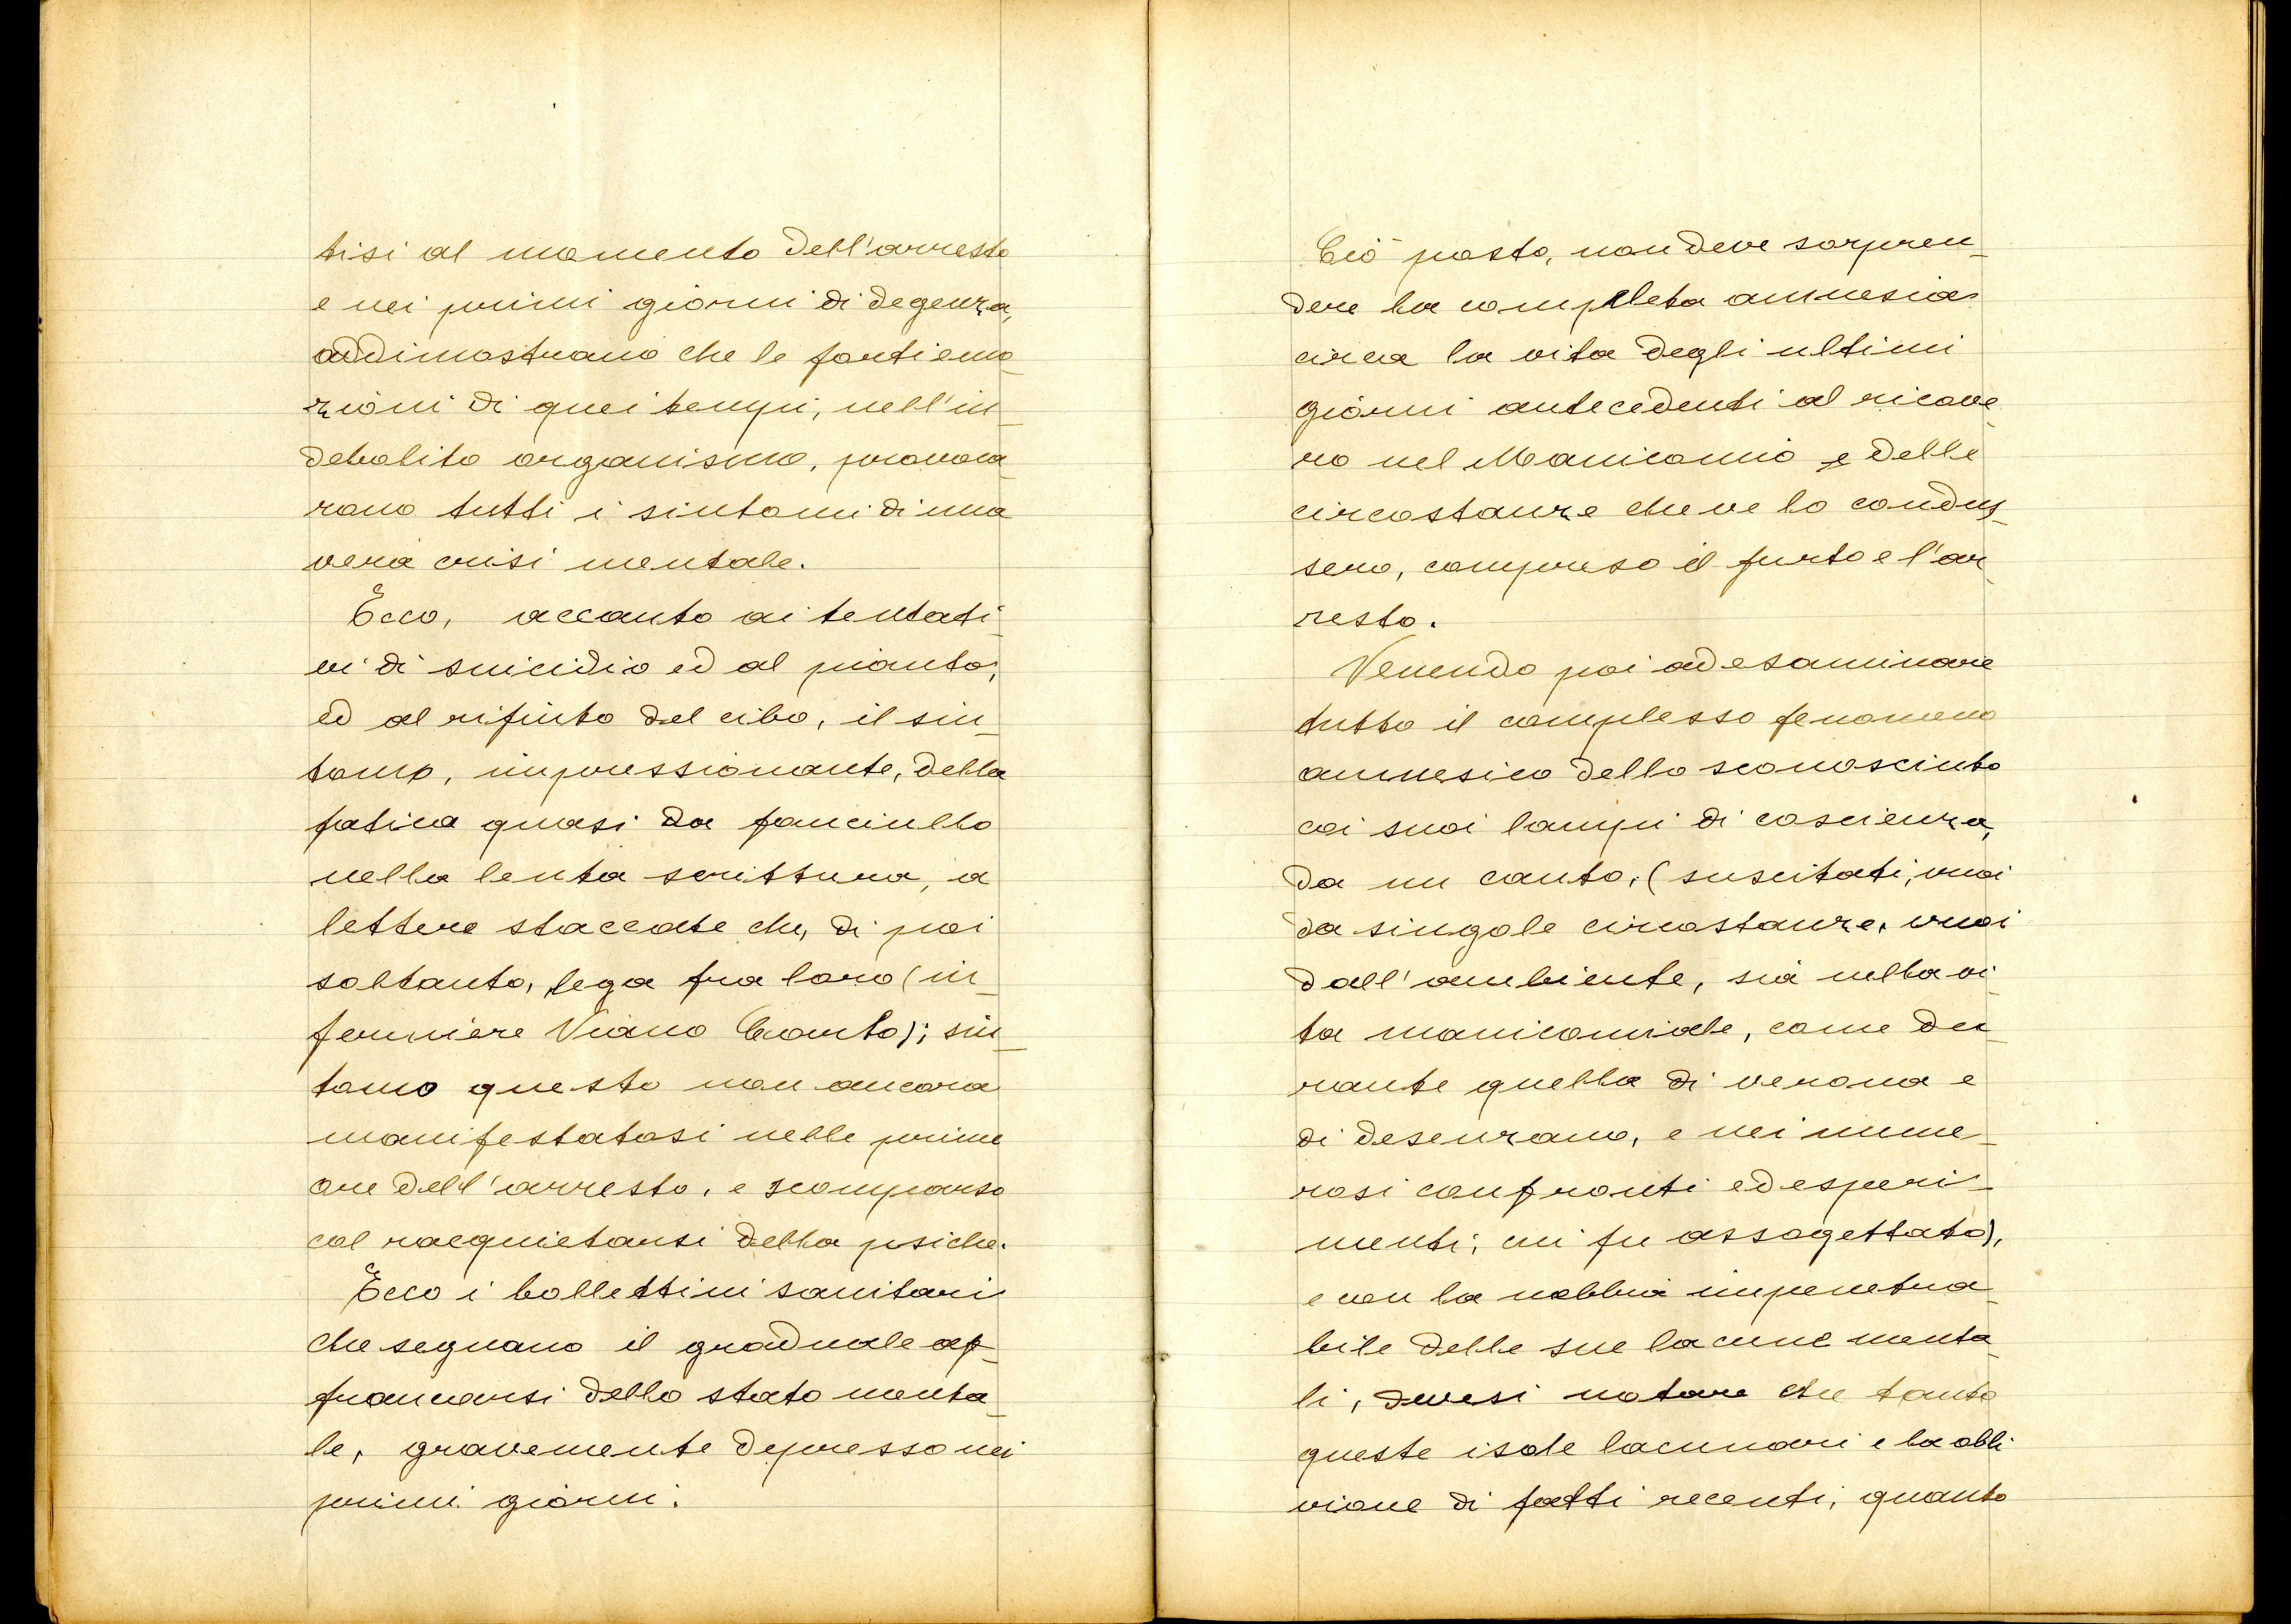 tisi al momento dell'arresto
e nei primi giorni di degenza,
addimostrano che le forti emo_
zioni di quei tempi, nell'in_
debolito organismo, provoca_
rono tutti i sintomi di una
vera crisi mentale.
Ecco, accanto ai tentati_
vi di suicidio ed al pianto,
ed al rifiuto del cibo, il sin_
tomo, impressionante, della
fatica quasi da fanciullo
nella lenta scrittura, a
lettere staccate che, di poi
soltanto, lega fra loro (in_
fermiere Viano Canto); sin_
tomo questo non ancora
manifestatosi nelle prime
ore dell'arresto, e scomparso
col racquietarsi della psiche.
Ecco i bollettini sanitari
che segnano il graduale af_
francarsi dello stato menta_
le, gravemente depresso nei
primi giorni.
Ciò posto, non deve sorpren_
dere la completa amnesia
circa la vita degli ultimi
giorni antecedenti al ricove_
ro nel Manicomio e delle
circostanze che ve lo condus_
sero, compreso il furto e l'ar_
resto.
Venendo poi ad esaminare
tutto il complesso fenomeno
amnesico dello sconosciuto
coi suoi lampi di coscienza,
da un canto, (suscitati, vuoi
da singole circostanze, vuoi
dall'ambiente, sia nella vi_
ta manicomiale, come du_
rante quella di verona e
di desenzano, e nei nume_
rosi confronti ed esperi_
menti, cui fu assogettato),
e con la nebbia impenetra_
bile delle sue lacune menta_
li, devesi notare che tanto
queste isole lacunari e la obli
vione di fatti recenti, quanto